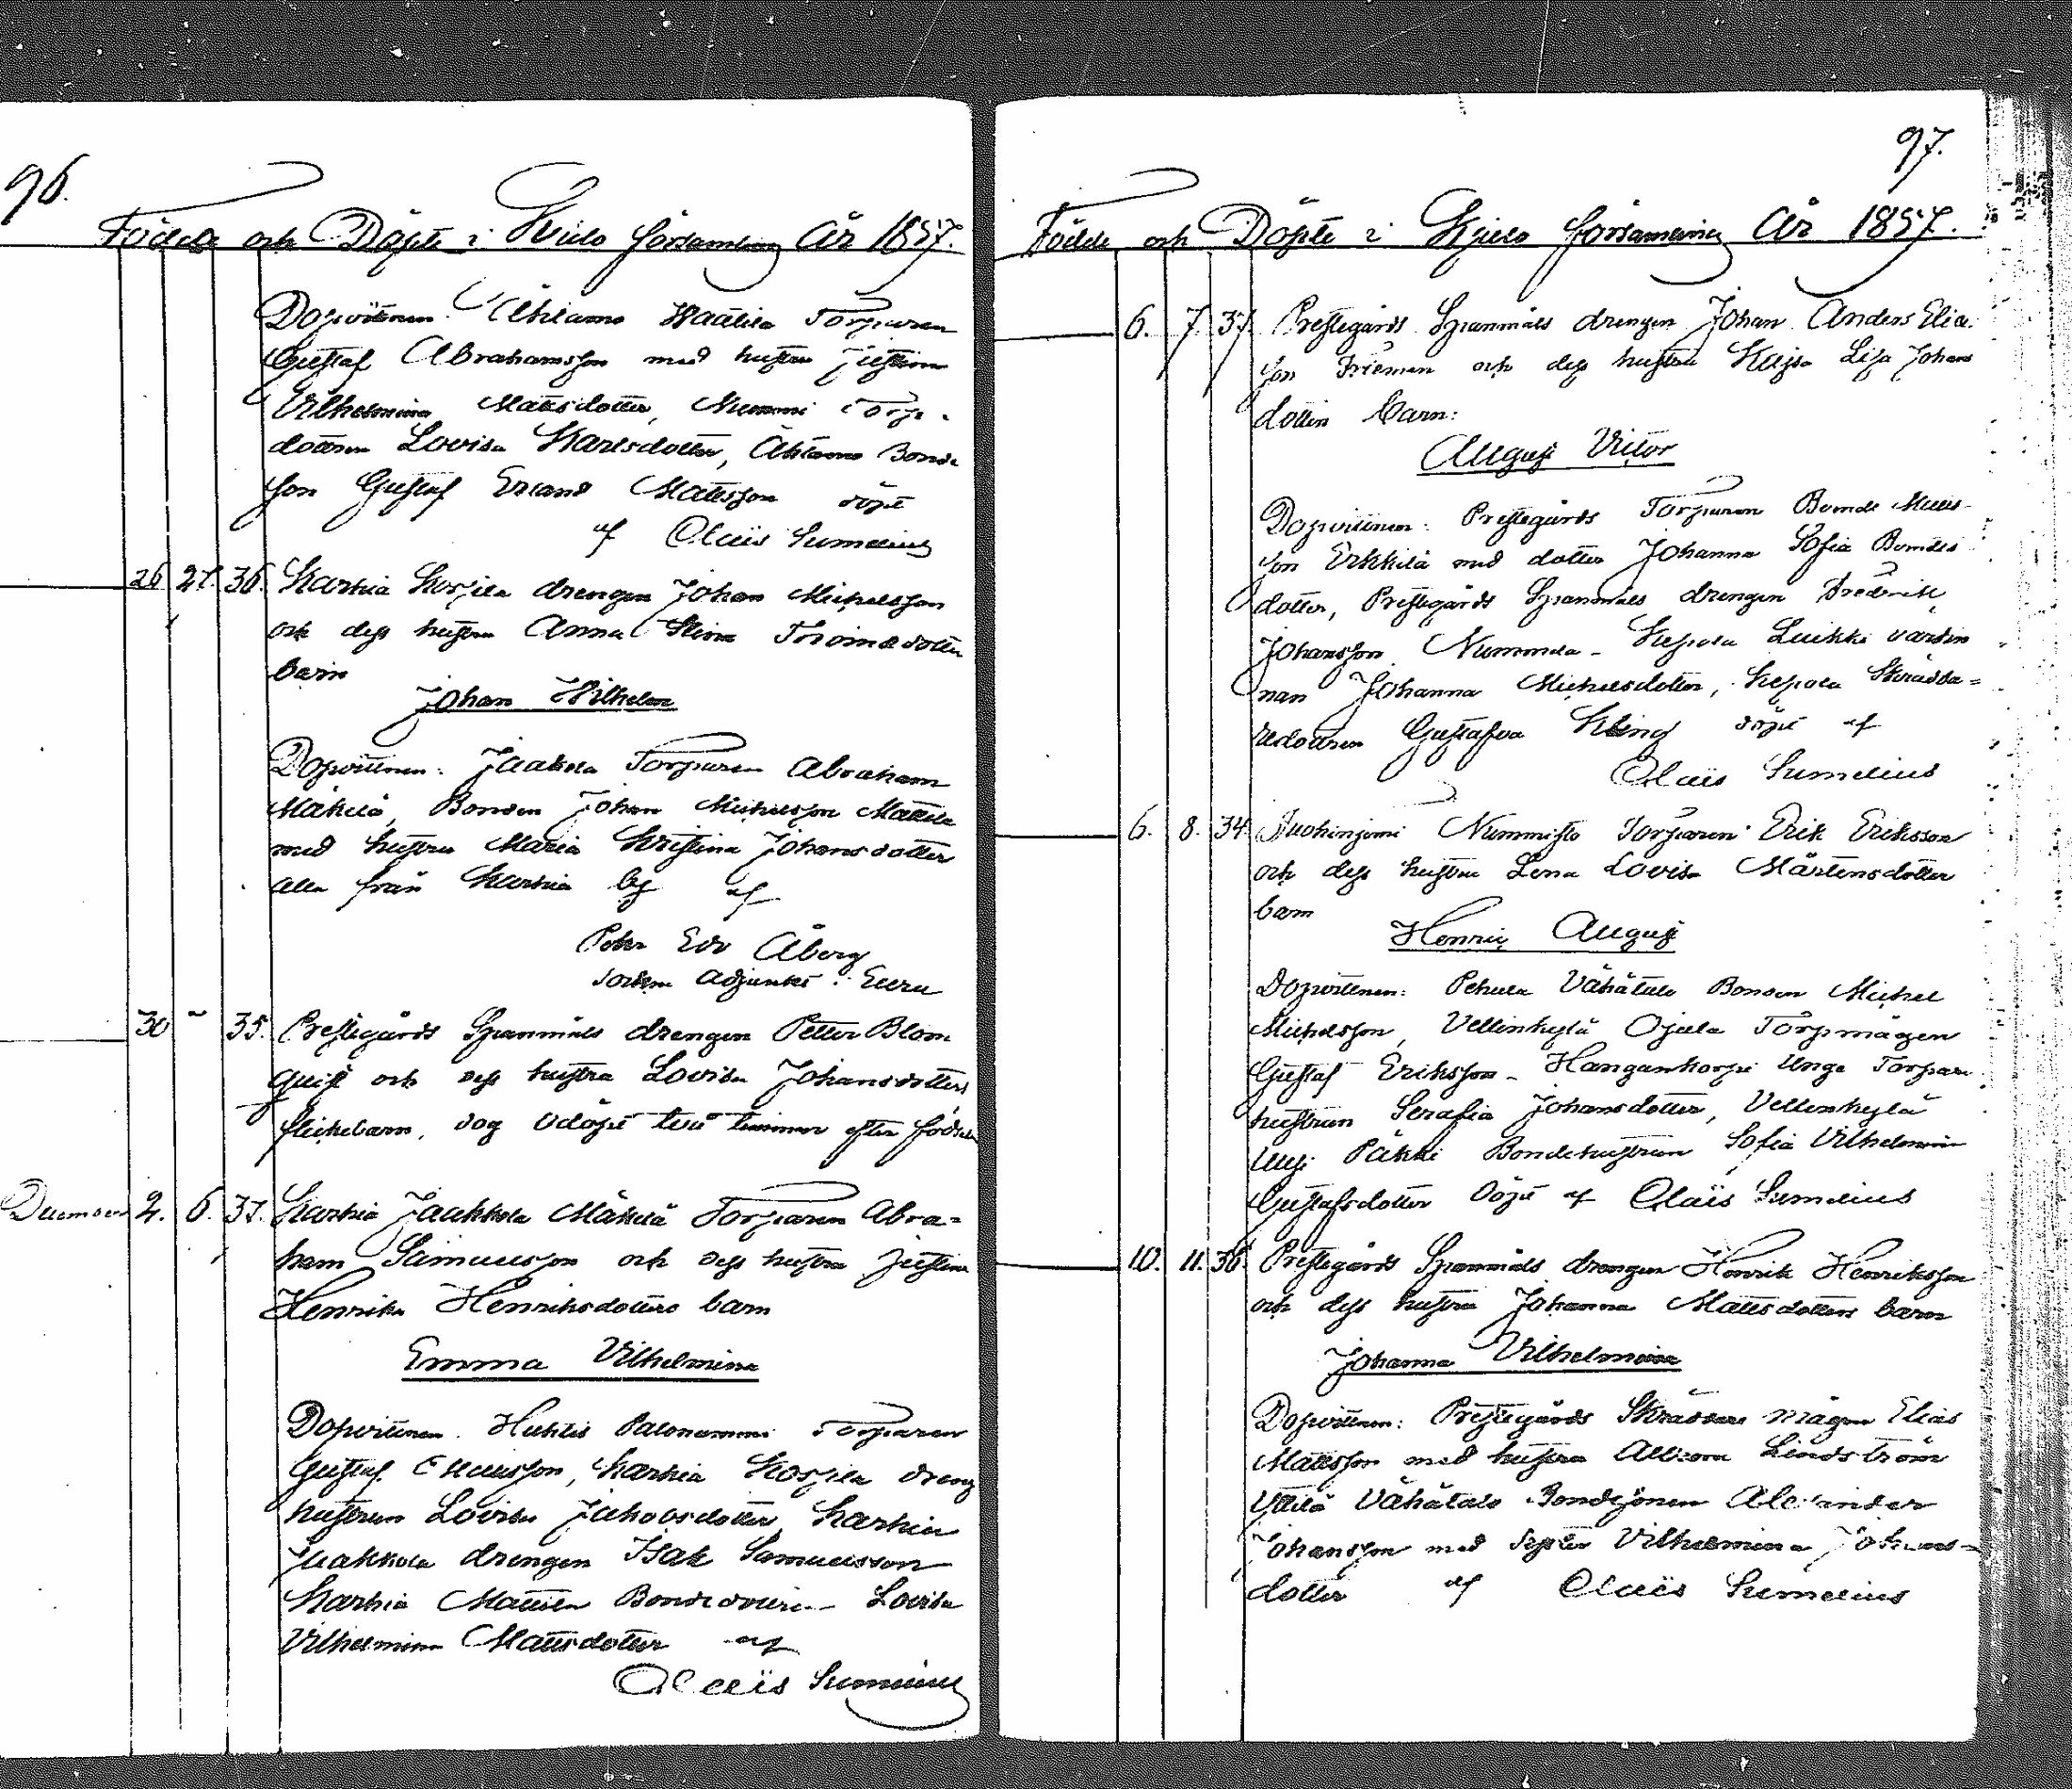 96.
Födda och Döpte i Kiulo församling År 1857.
Dopvittnen: Ahlamo Haalila Torparen
Gustaf Abrahamsson med hustru Justina
Vilhelmina Mattsdotter, Nummi Torp-
dottren Lovisa Karlsdotter, Bonde
son Gustaf Erland Mattsson döpt
af Olaus Sumelius
26 27. 36. Karhia Kospila drengen Johan Michelsson
och dess hustru Anna Stina Thomasdotter
barn
Johan Wilhelm
Dopvittnen: Jaakola Torparen Abraham
Mäkilä, Bonden Johan Michelsson Mattila
med hustru Maria Kristina Johansdotter
alla från Karhia by af
Petr Edv Åberg
Adjunkt i Eura
30 " 35. Prestegårds Spanmåls drengen Petter Blom
quist och dess hustru Lovisa Johansdotters
flickebarn, dog odöpt två timmar efter födseln
December 2. 6. 37. Karhia Jaakkola Mäkilä Torparen Abra-
ham Samuelsson och dess hustru Justina
Henrika Henriksdotters barn
Emma Vilhelmina
Dopvittnen. Huhtis Palonummi Torparen
Gustaf Karhia Kospila dreng
hustrun Lovisa Jakobsdotter, Karhia
Jaakkola drengen Isak Samuelsson
Karhia Mattila Bondedottren Lovisa
Vilhelmina Mattsdotter af
Olaus Sumelius
97.
Födde och Döpte i Kjulo församling År 1857.
6. 7. 37. Prestegårds Spanmåls drengen Johan Anders Elias
son Frieman och dess hustru Kajsa Lisa Johans
dotters barn:
August Victor
Dopvittnen: Prestegårds Torparen Mats
son Erkkilä med dotter Johanna Sofia
dotter, Prestegårds Spanmåls drengen Fredrik
Johansson Nummela - Kepola Luikki värdin
nan Johanna Michelsdotter, Kepola Skrädda=
redottren Gustafva Kling döpt af
Olaus Sumelius
6. 8. 34. Nummisto Torparen Erik Eriksson
och dess hustru Lena Lovisa Mårtensdotter
barn
Henric August
Dopvittnen: Pehula Vähätalo Bonden Michel
Michelsson, Vellinkylä Ojala Torpmågen
Gustaf Eriksson - Hangankorpi Unge Torpare
hustrun Serafia Johansdotter, Vellinkylä
Uusi Päkki Bondehustrun Sofia Vilhelmina
Gustafsdotter Döpt af Olaus Sumelius
10. 11. 36. Prestegårds Spanmåls drengen Henrik Henriksson
och dess hustru Johanna Mattsdotters barn
Johanna Vilhelmina
Dopvittnen: Prestegårds Skräddare mågen Elias
Mattsson med hustru Albina Lindström
Yttilä Vähätalo Bondesonen Alexander
Johansson med Syster Vilhelmina Johans-
dotter af Olaus Sumelius